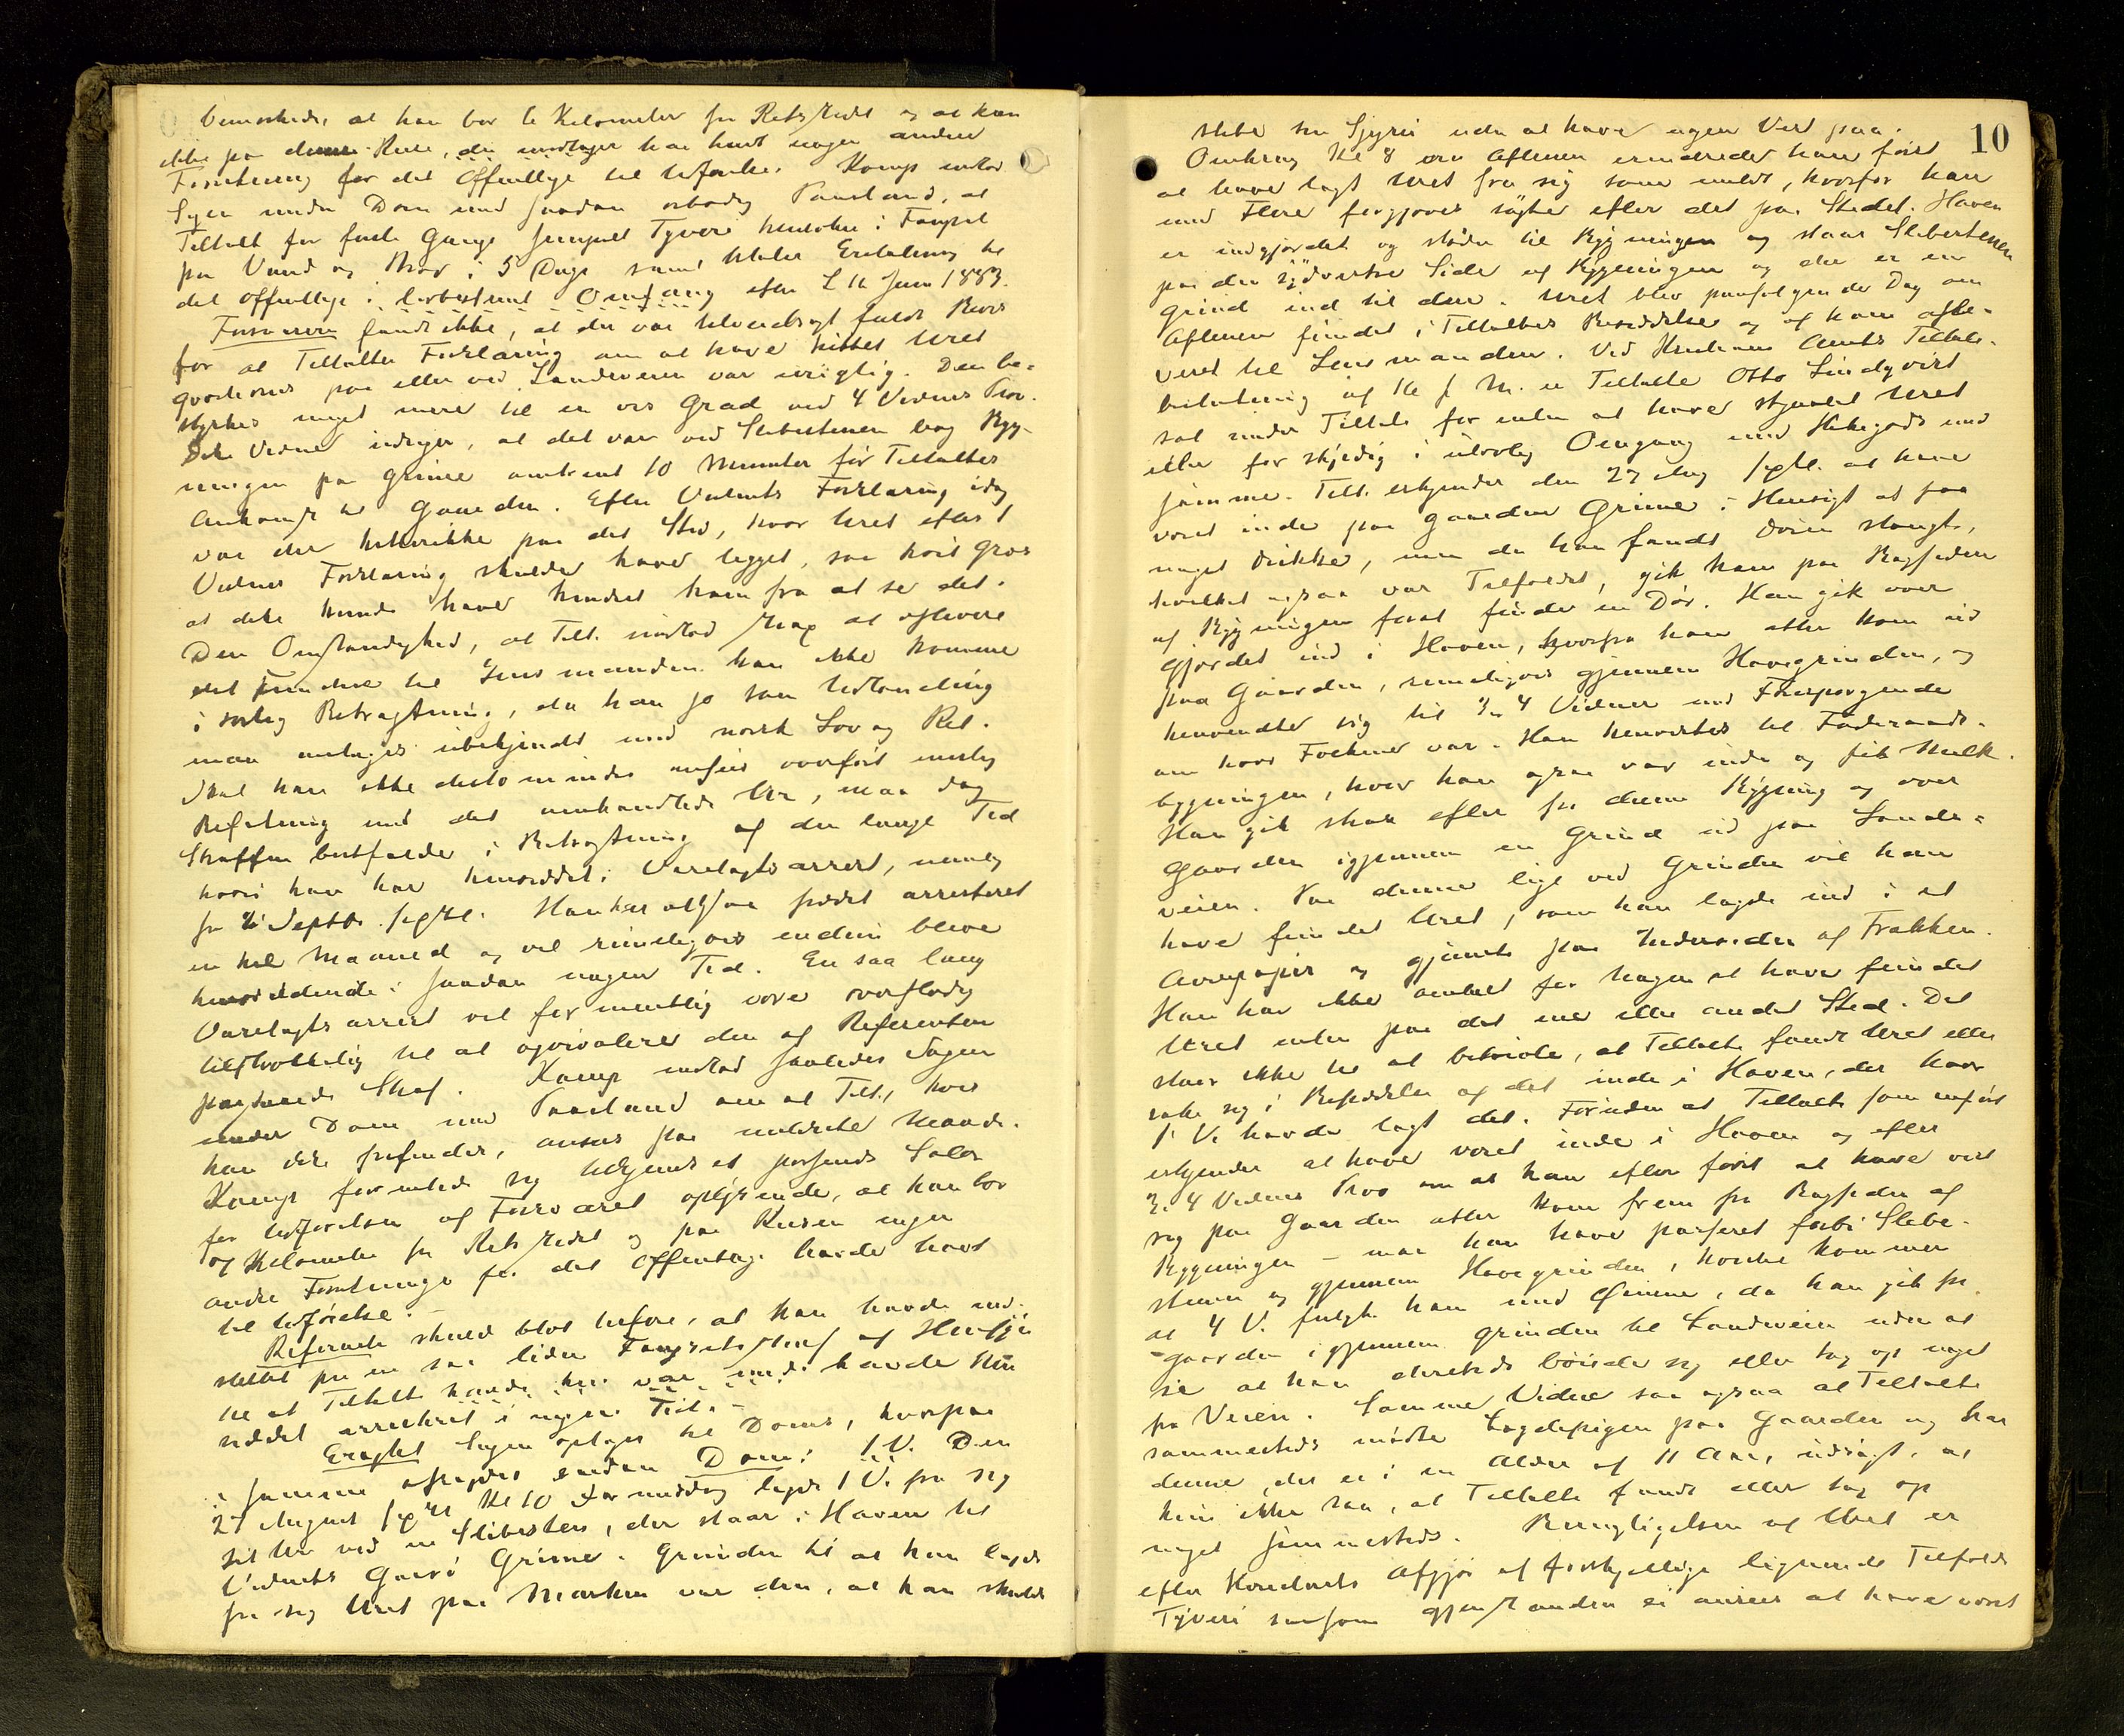 bemærkede, at han bor 6 Kilometer fra Retsstedet og at han
ikke paa denne Reise, har havt nogen anden
Forretning for det Offentlige at udføre. Kamp indlod
Sagen under Dom med saadan Paastand, at
Tiltalte for første Gangs simpelt Tyveri henføres i Fængsel
paa Vand og Brød i 5 Dage samt tilsvarer Erstatning til
det offentlige i Omfang efter L 16 Juni 1883.
Forsvareren fandt ikke, at der var tilveiebragt fuldt Bevis
for at Tiltaltes Forklaring om at have hittet Uret
paa eller ved Landeveien var urigtig. Den be-
styrkes meget mere til en vis Grad ved 4 Vidnes Prov.
Dette Vidne udsiger, at det var ved Slibestenen bag Byg-
ningen paa Grime omtrent 10 Minuter før Tiltaltes
Ankomst til Gaarden. Efter Vidnets Forklaring idag
var der heller ikke paa det Sted, hvor Uret efter 1
Vidnes Forklaring skulde have ligget, saa høit Græs
at dette kunde have hindret ham fra at se det.
Den Omstændighed, at Tilt. undlod strax at aflevere
det fundne til Lensmanden kan ikke komme
i særlig Betragtning, da han jo som Udlænding
maa antages ubekjendt med norsk Lov og Ret.
Skal han ikke desto mindre ansees overført ulovlig
Befatning med det omhandlede Ur, maa dog
Straffen bortfalde i Betragtning af den lange Tid
hvori han har hensiddet i Varetægtsarrest, nemlig
fra 2 Septbr. sidstl. Han har altsaa siddet arresteret
en hel Maaned og vil rimeligvis endnu blive
hensiddende i saadan nogen Tid. En saa lang
Varetægtsarrest vil formentlig være overflødig
tilstrækkelig til at opveie den af Referenten
paastaaede Straf. Kamp indlod saaledes Sagen
under Dom med Paastand om at Tilt., hvis
han ikke frifindes, ansees paa mildeste Maade.
Kamp formente sig tilkjendt et passende Salær
for Udførelsen af Forsvaret oplysende, at han bor
Kilometer fra Retsstedet og paa Reisen ingen
andre Forretninger for det Offentlige havde havt
til Udførelse.
Referenten skulde blot anføre, at han havde ind-
stillet paa en saa liden Fængselsstraf af Hensyn
til at Tiltalte havde
siddet arresteret i nogen Tid.
Eragtet Sagen optages til Doms, hvorpaa
i samme afsagdes saadan Dom: 1 V. Den
27 August sidstl Kl 10 Formiddag lagde 1 V. fra sig
sit Ur ved en Slibesten, der staar i Haven til
Vidnets Gaard Grime. Grunden til at han lagde
fra sig Uret paa Marken var den, at han skulde
10
slibe sin Ljaa uden at have nogen Vest paa.
Omkring Kl 8 om Aftenen erindrede han først
at have lagt Uret fra sig som meldt, hvorfor han
med Flere forgjæves søgte efter det paa Stedet. Haven
er indgjærdet og støder til Bygningen og staar Slibestenen
paa den sydvestre Side af Bygningen og der er en
Grind ind til den. Uret blev paafølgende Dag om
Aftenen fundet i Tiltaltes Besiddelse og af ham afle-
veret til Lensmanden. Ved Amts Tiltale-
beslutning af 16 f. M. er Tiltalte Otto Lindqvist
sat under Tiltale for enten at have stjaalet Uret
eller for skyldig i ulovlig Omgang med Hittegods med
samme. Tilt. erkjender den 27 Aug sidstl. at have
været inde paa Gaarden Grime i Hensigt at faa
noget Drikke, men da han fandt Døren stængt,
hvilket ogsaa var Tilfældet, gik han paa Bagsiden
af Bygningen forat finde en Dør. Han gik over
Gjærdet ind i Haven, hvorfra han atter kom ud
paa Gaarden, rimeligvis gjennem Havegrinden, og
henvendte sig til 3. 4 Vidner med Forespørgende
om hvor Folkene var. Han henvistes til Føderaads-
bygningen, hvor han ogsaa var inde og fik Melk.
Han gik strax efter fra denne Bygning og over
Gaarden igjennem en Grind ud paa Lande-
veien. Paa denne lige ved Grinden vil han
have fundet Uret, som han lagde ind i et
Avispapir og gjemte paa Indersiden af Frakken.
Han har ikke omtalt for Nogen at have fundet
Uret enten paa det ene eller andet Sted. Det
staar ikke til at betvivle, at Tiltalte fandt Uret eller
satte sig i Besiddelse af det inde i Haven, der hvor
1 V. havde lagt det. Foruden at Tiltalte som anført
erkjender at have været inde i Haven og efter
3. 4 Vidners Prov om at han efter først at have vist
sig paa Gaarden atter kom frem fra Bagsiden af
Bygningen – maa han have passeret forbi Slibe-
stenen og gjennem Havegrinden, hvortil kommer
at 4 V. fulgte ham med Øinene, da han gik fra
Gaarden igjennem Grinden til Landeveien uden at
se at han dersteds bøiede sig eller tog op noget
fra Veien. Samme Vidne saa ogsaa at Tiltalte
sammesteds mødte paa Gaarden og har
denne, der er i en Alder af 11 Aar, udsagt, at
hun ikke saa, at Tiltalte fandt eller tog op
noget sammesteds. Borttagelsen af Uret er
efter Afgjør af forskjellige lignende Tilfælde
Tyveri saasom Gjenstanden ei ansees at have været